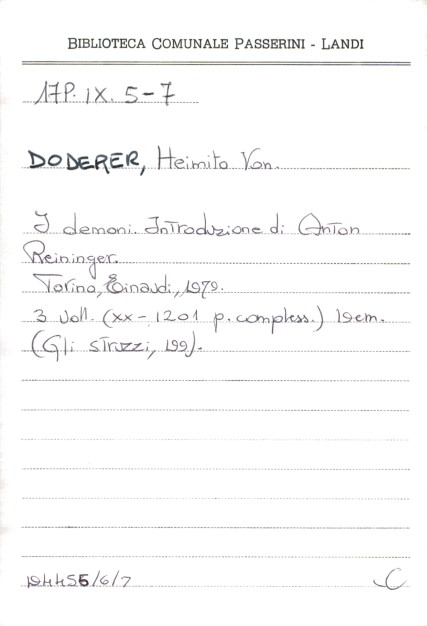 BIBLIOTECA COMUNALE PASSERINI - LANDI
17P. IX. 5-7
DODERER, Heimito Von.
I demoni. Introduzione di Anton
Reininger.
Torino, Einaudi, 1979.
3 voll. (xx-1201 p. compless.) 19cm.
(Gli struzzi, 199).
194455/6/7
C